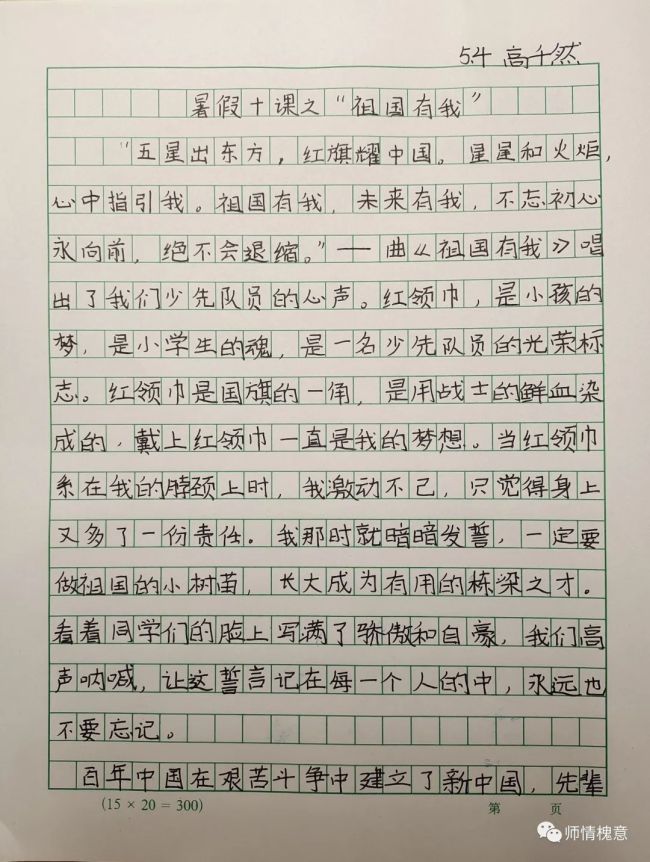 5.4 高千然
暑假十课之“祖国有我”
“五星出东方，红旗耀中国。星星和火炬，
心中指引我。祖国有我，未来有我，不忘初心
永向前，绝不会退缩。”——曲《祖国有我》唱
出了我们少先队员的心声。红领巾，是小孩的
梦，是小学生的魂，是一名少先队员的光荣标
志。红领巾是国旗的一角，是用战士的鲜血染
成的，戴上红领巾一直是我的梦想。当红领巾
系在我的脖颈上时，我激动不己，只觉得身上
又多了一份责任。我那时就暗暗发誓，一定要
做祖国的小树苗，长大成为有用的栋梁之才。
看着同学们的脸上写满了骄傲和自豪，我们高
声呐喊，让这誓言记在每一个人的中，永远也
不要忘记。
百年中国在艰苦斗争中建立了新中国，先辈
(15 × 20 = 300) 第 页
师情槐意